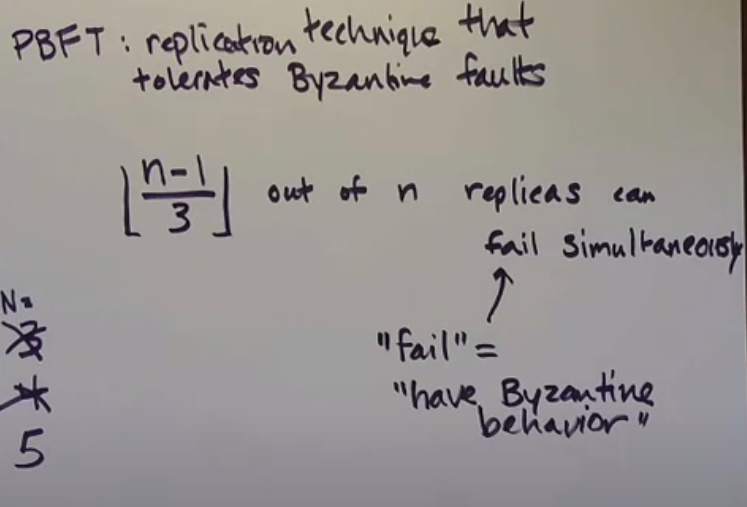 PBFT: replication technique that
tolerates Byzantine faults
⌊(n-1)/3⌋ out of n replicas can
fail simultaneously
"fail" =
"have Byzantine
behavior"
N=
3
4
5